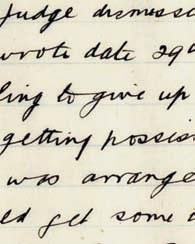 judge dismisse
wrote date 29
ling to give up
getting possess
was arrange
ld get some t